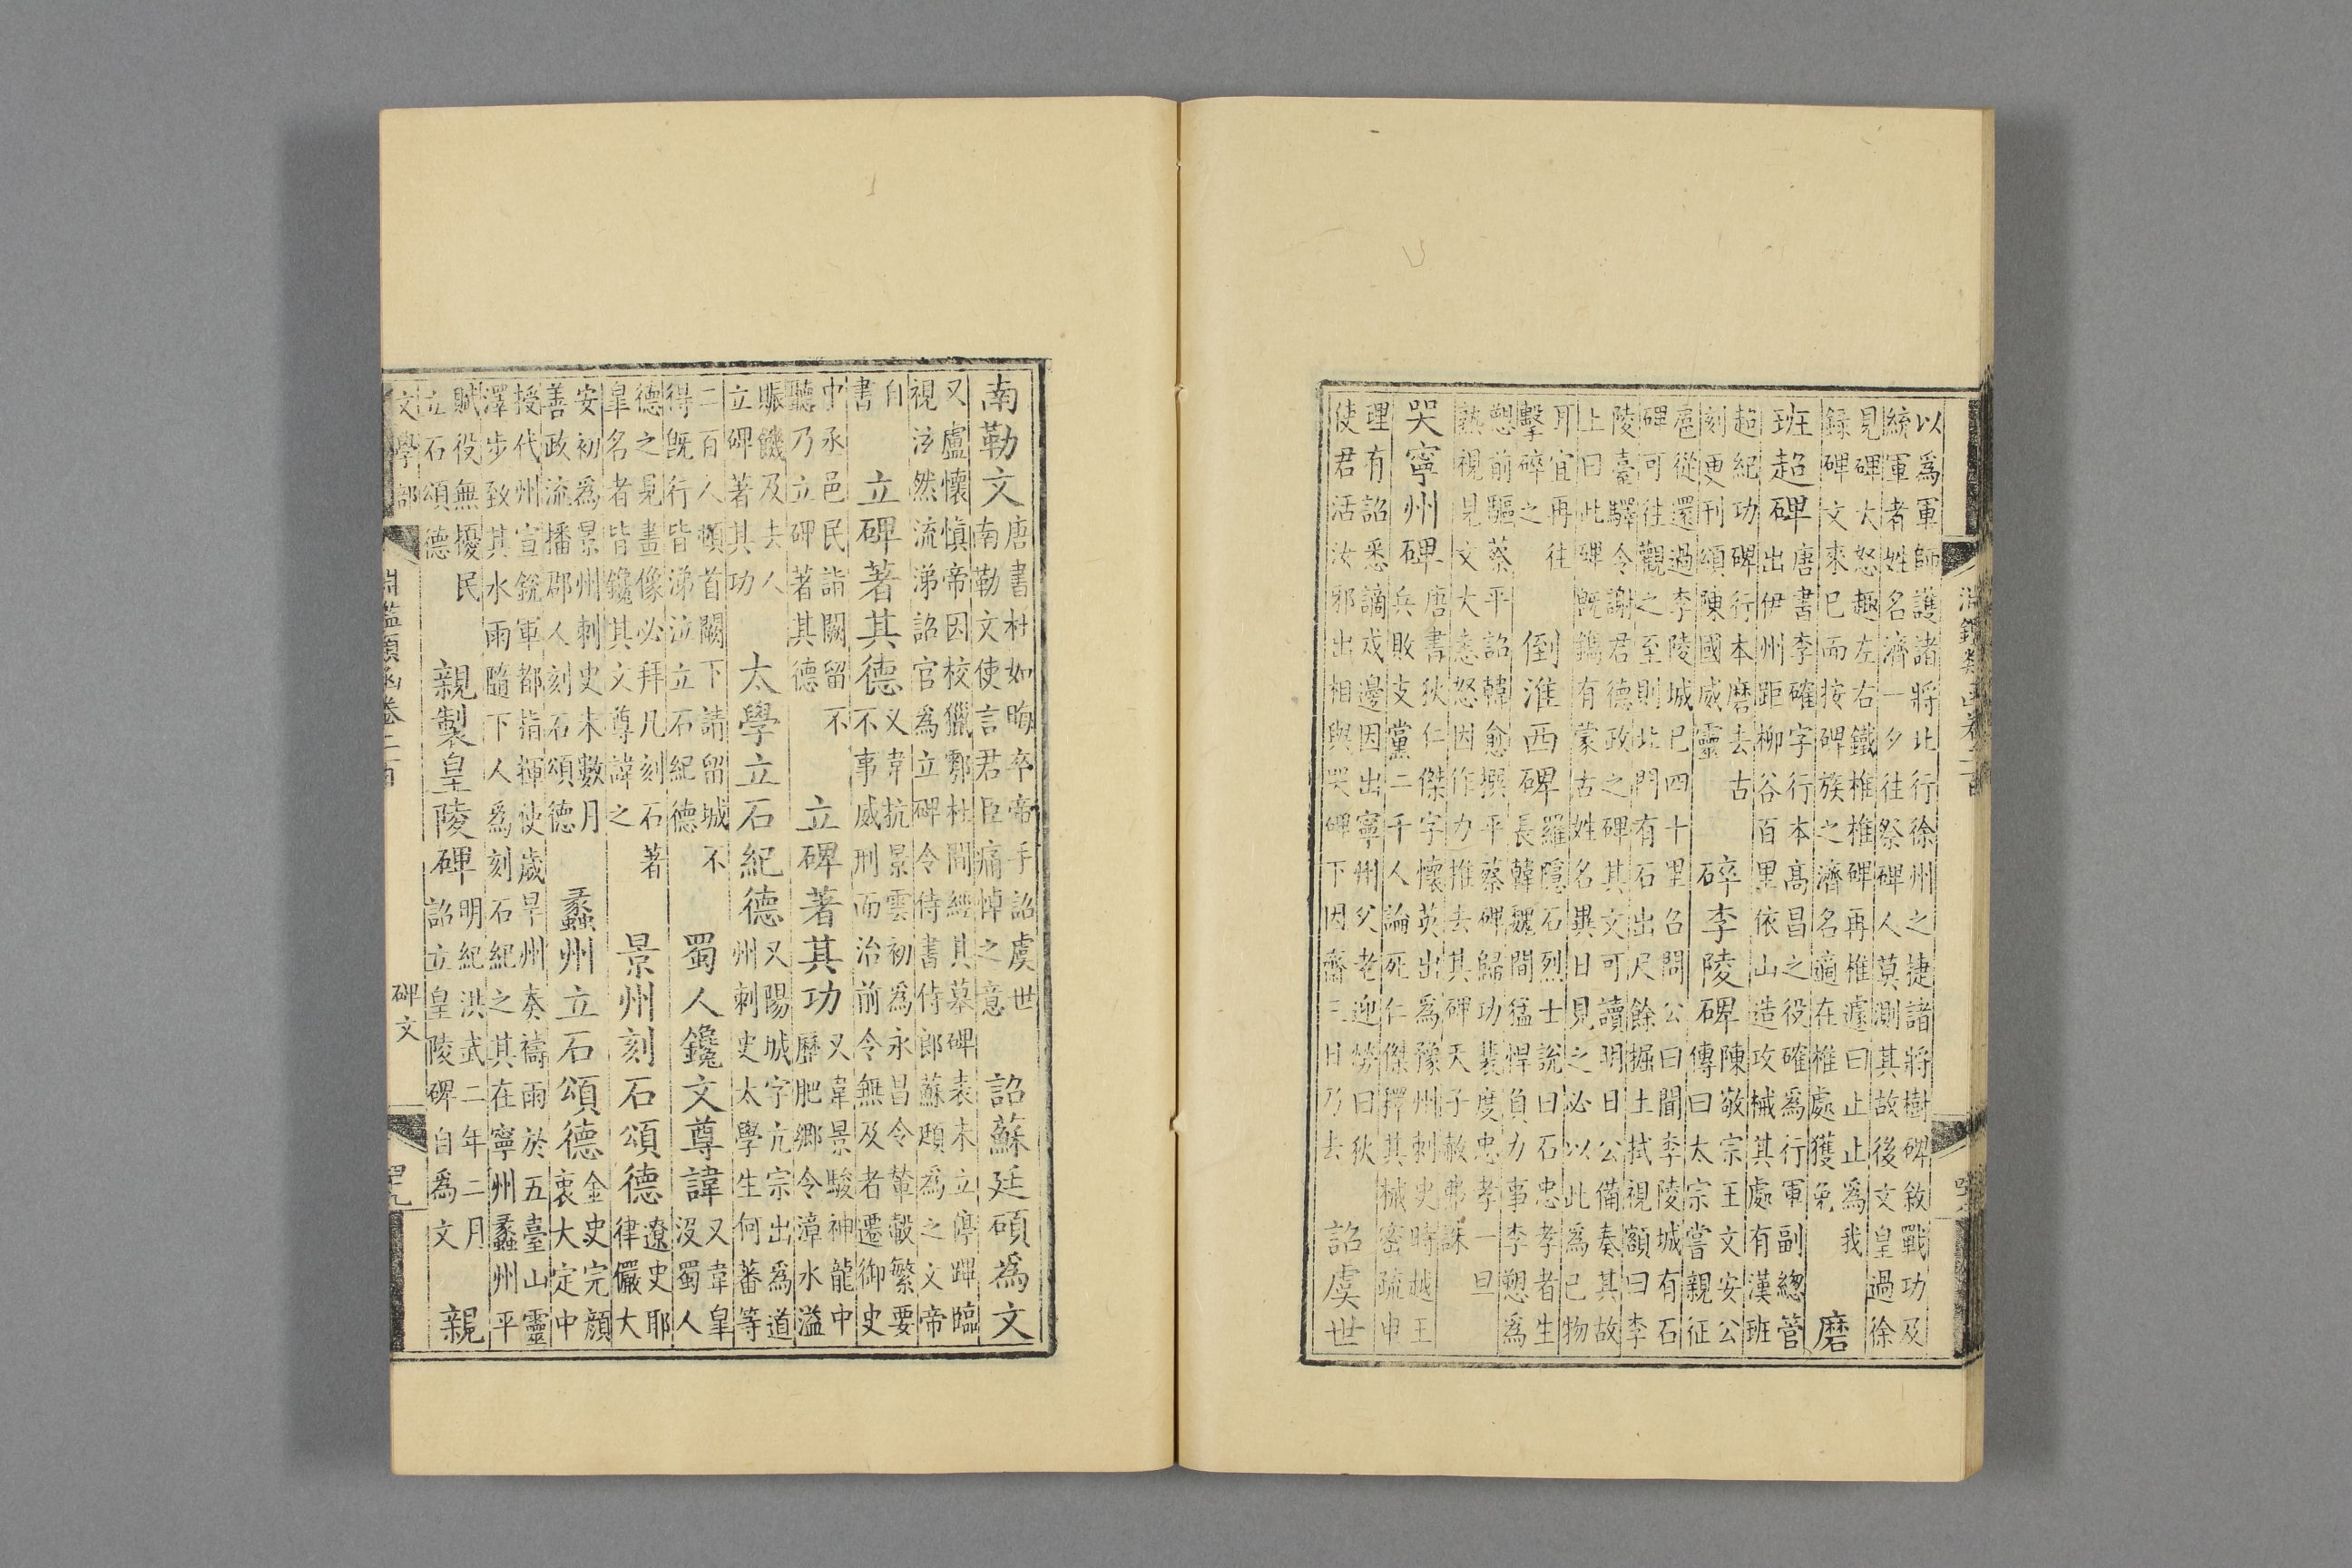 淵鑑類函卷二百
以爲軍師護諸將北行徐州之捷諸將樹碑敘戰功及
統軍者姓名濟一夕往祭碑人莫測其故後文皇過徐
見碑大怒趣左右鐵椎椎碑再椎遽曰止止爲我
錄碑文來已而按碑族之濟名適在椎處獲免
磨
班超碑
唐書李確字行本高昌之役確爲行軍副總管
出伊州距柳谷百里依山造攻械其處有漢班
超紀功碑行本磨去古
刻更刊頌陳國威靈
碎李陵碑
陳敬宗王文安公
傳曰太宗嘗親征
扈從還過李陵城已四十里召問公曰聞李陵城有石
碑可往觀之至則北門有石出尺餘掘土拭視額曰李
陵臺驛令謝君德政之碑其文可讀明日公備奏其故
上曰此碑旣鐫有蒙古姓名異日見之必以此爲己物
耳宜再往
擊碎之
倒淮西碑
羅隱石烈士說曰石忠孝者生
長韓魏間猛悍負力事李愬爲
愬前驅蔡平詔韓愈撰平蔡碑歸功裴度忠孝一旦
熟視見文大恚怒因作力推去其碑天子赦弗誅
哭寧州碑
唐書狄仁傑字懷英出爲豫州刺史時越王
兵敗支黨二千人論死仁傑釋其械密疏申
理有詔悉謫戍邊因出寧州父老迎勞曰狄
使君活汝邪出相與哭碑下因齋三日乃去
詔虞世
南勒文
唐書杜如晦卒帝手詔虞世
南勒文使言君臣痛悼之意
詔蘇廷碩爲文
又盧懷慎帝因校獵鄠杜間經其墓碑表未立停蹕臨
視泫然流涕詔官爲立碑令侍書侍郎蘇頲爲之文帝
自
書
立碑著其德
又韋抗景雲初爲永昌令輦轂繁要
不事威刑而治前令無及者遷御史
中丞邑民詣闕留不
聽乃立碑著其德
立碑著其功
又韋景駿神龍中
歷肥鄉令漳水溢
賑饑及去人
立碑著其功
太學立石紀德
又陽城字亢宗出爲道
州刺史太學生何蕃等
二百人頓首闕下請留城不
得旣行皆涕泣立石紀德
蜀人鑱文尊諱
又韋皐
沒蜀人
德之見畫像必拜凡刻石著
皐名者皆鑱其文尊諱之
景州刻石頌德
遼史耶
律儼大
安初爲景州刺史未數月
善政流播郡人刻石頌德
蠡州立石頌德
金史完顏
衷大定中
授代州宣銳軍都指揮使歲旱州奏禱雨於五臺山靈
澤步致其水雨隨下人爲刻石紀之其在寧州蠡州平
賦役無擾民
立石頌德
親製皇陵碑
明紀洪武二年二月
詔立皇陵碑自爲文
親
文學部
淵鑑類函卷二百
碑文